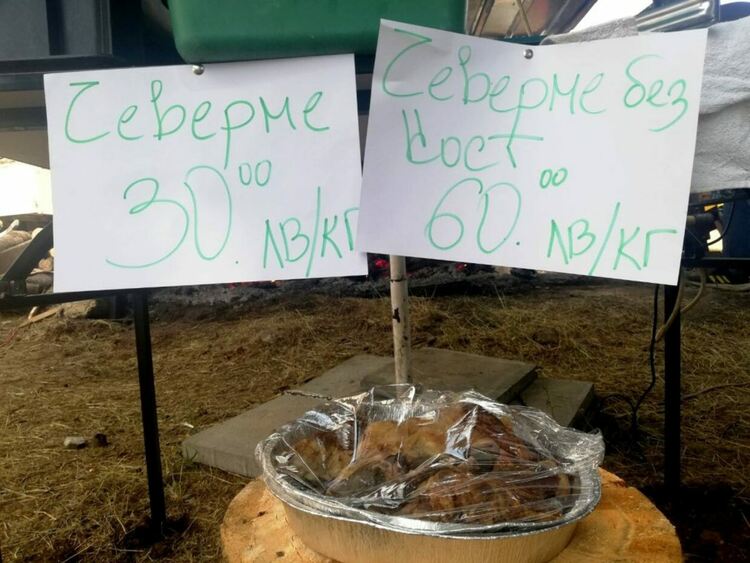 Чеверме
30.00 лв/кг
Чеверме без
кост
60.00 лв/кг